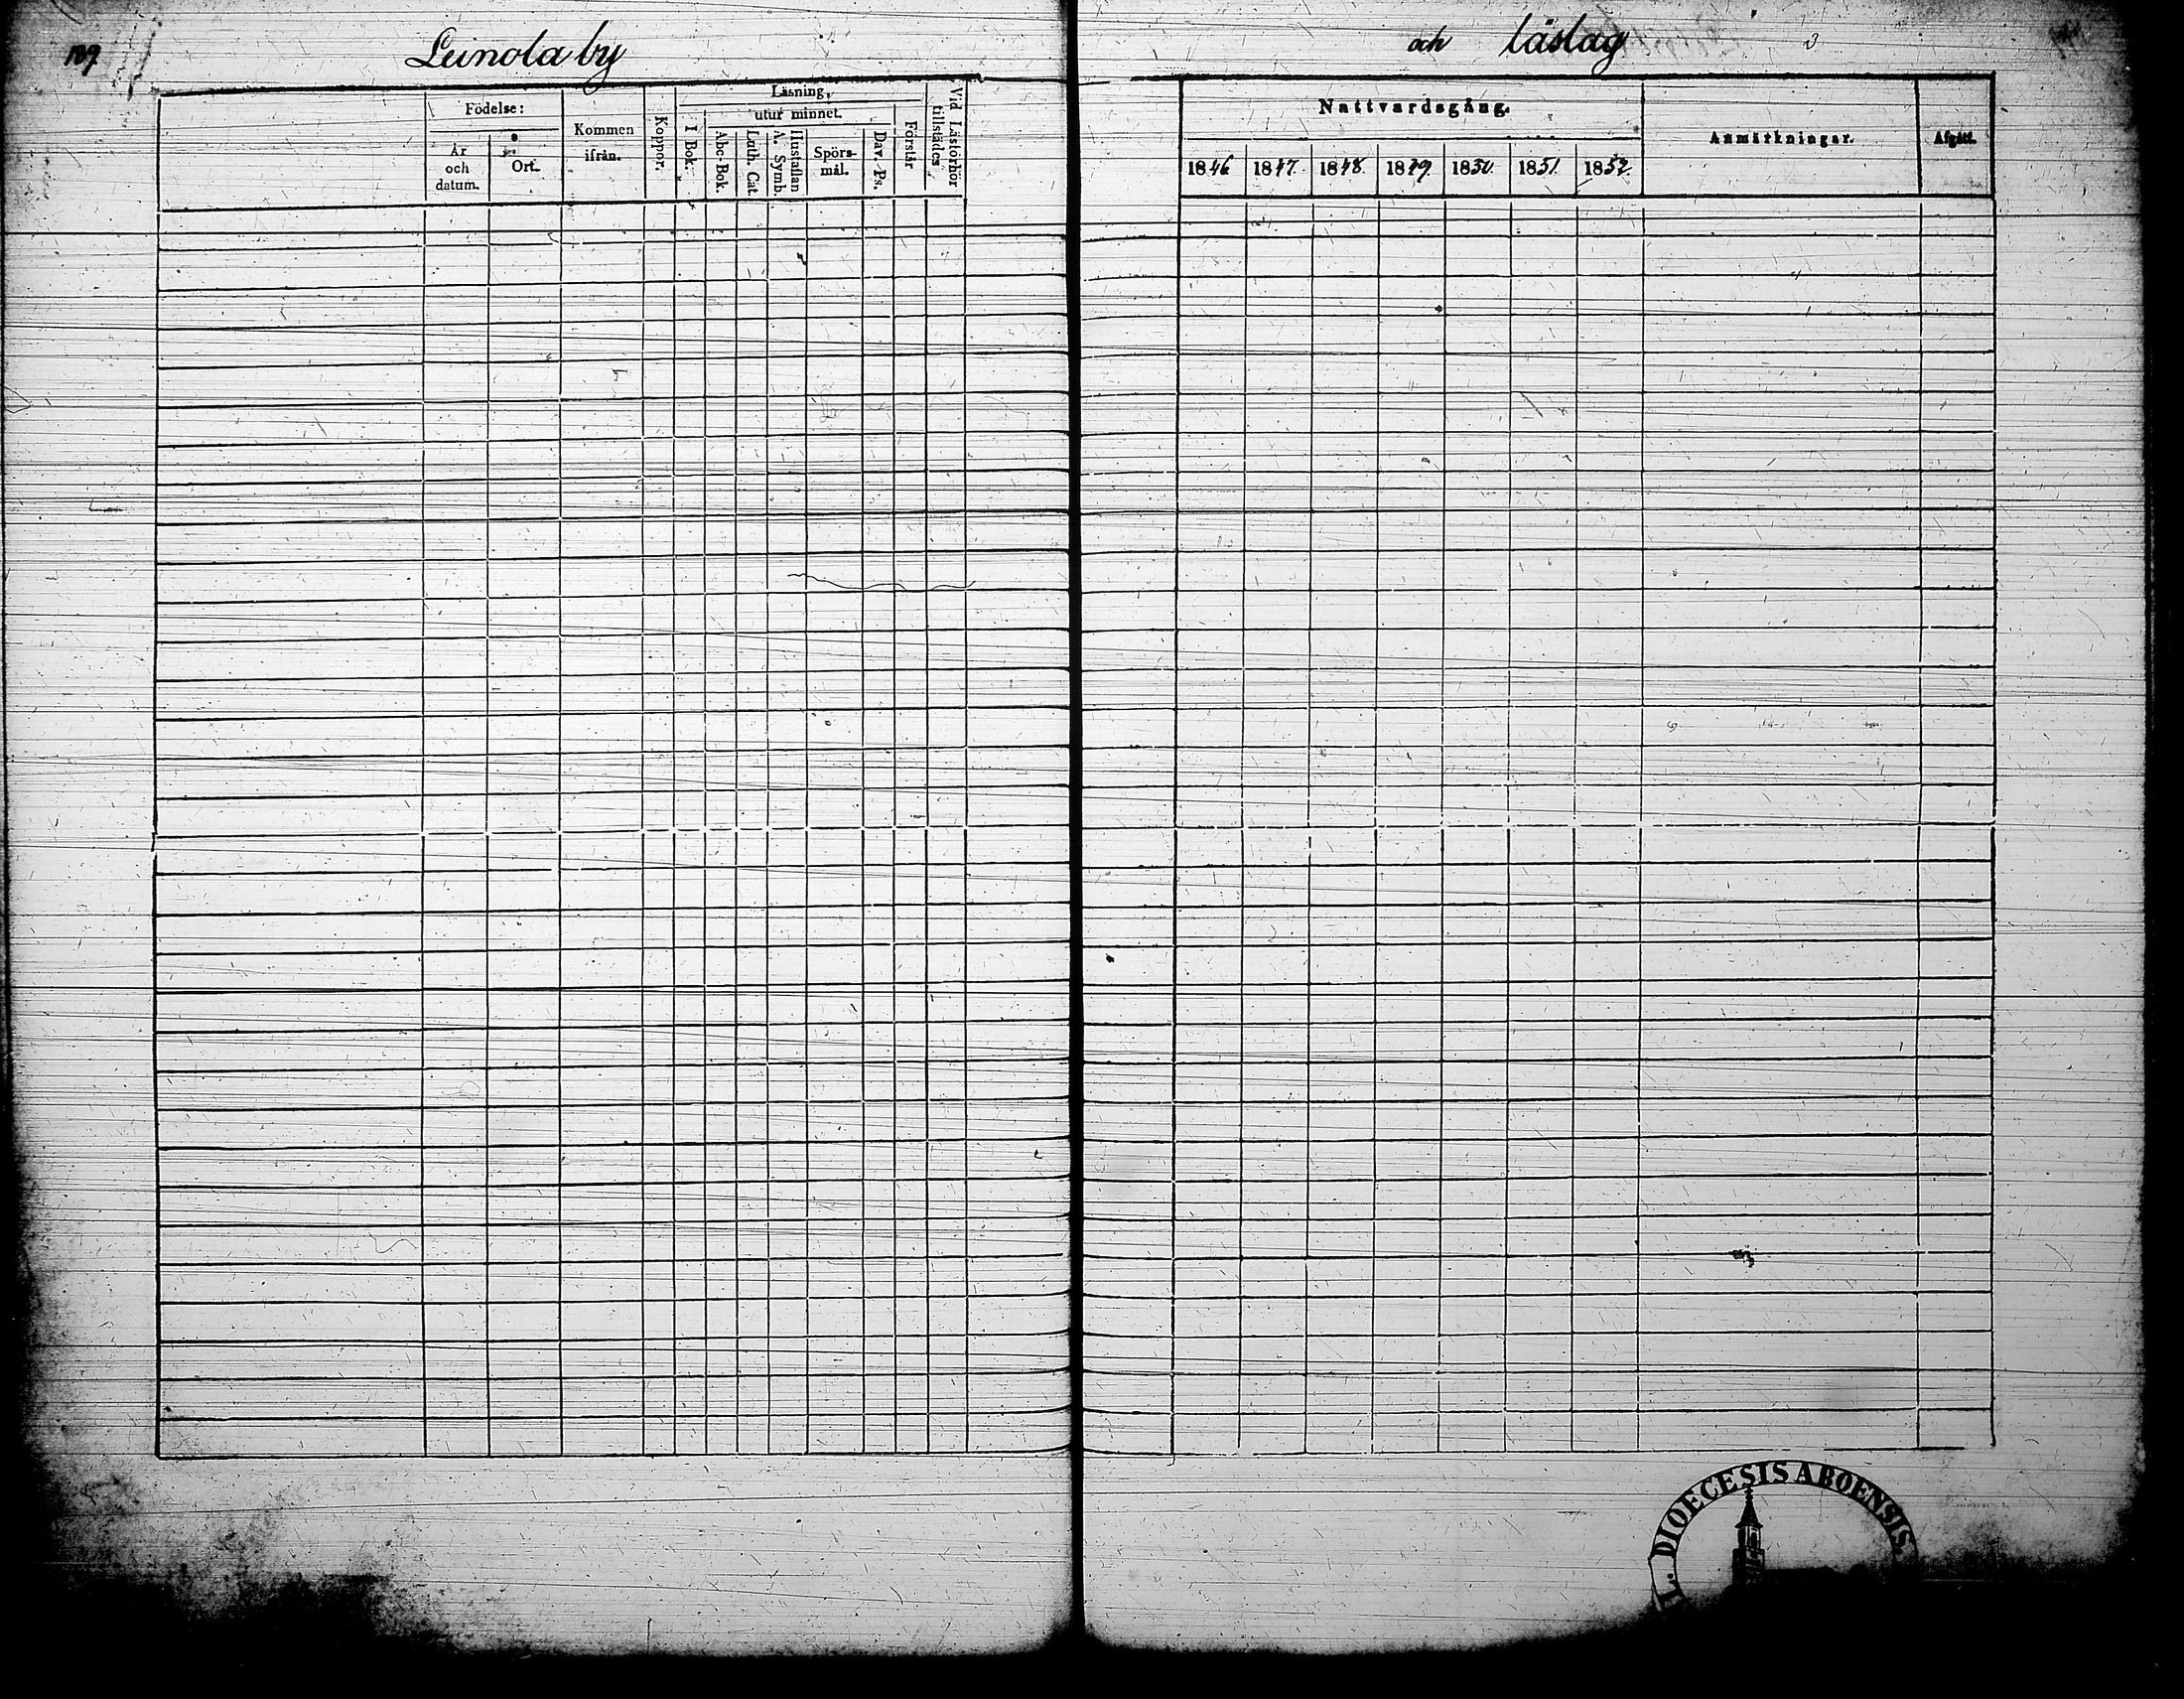 189
Leinola by
och läslag
Födelse:
År
och
datum.
Ort.
Kommen
ifrån.
Koppor.
Läsning,
I Bok.
utur minnet.
Abc-Bok.
Luth. Cat.
Hustaflan
A. Symb.
Spörs-
mål.
Dav. Ps.
Förstår
Vid Läsförhör
tillstädes.
Nattvardsgång.
1846 1847. 1848. 1849. 1850. 1851. 1852.
Anmärkningar.
Afgått.
L. DIOECESIS ABOENSIS.